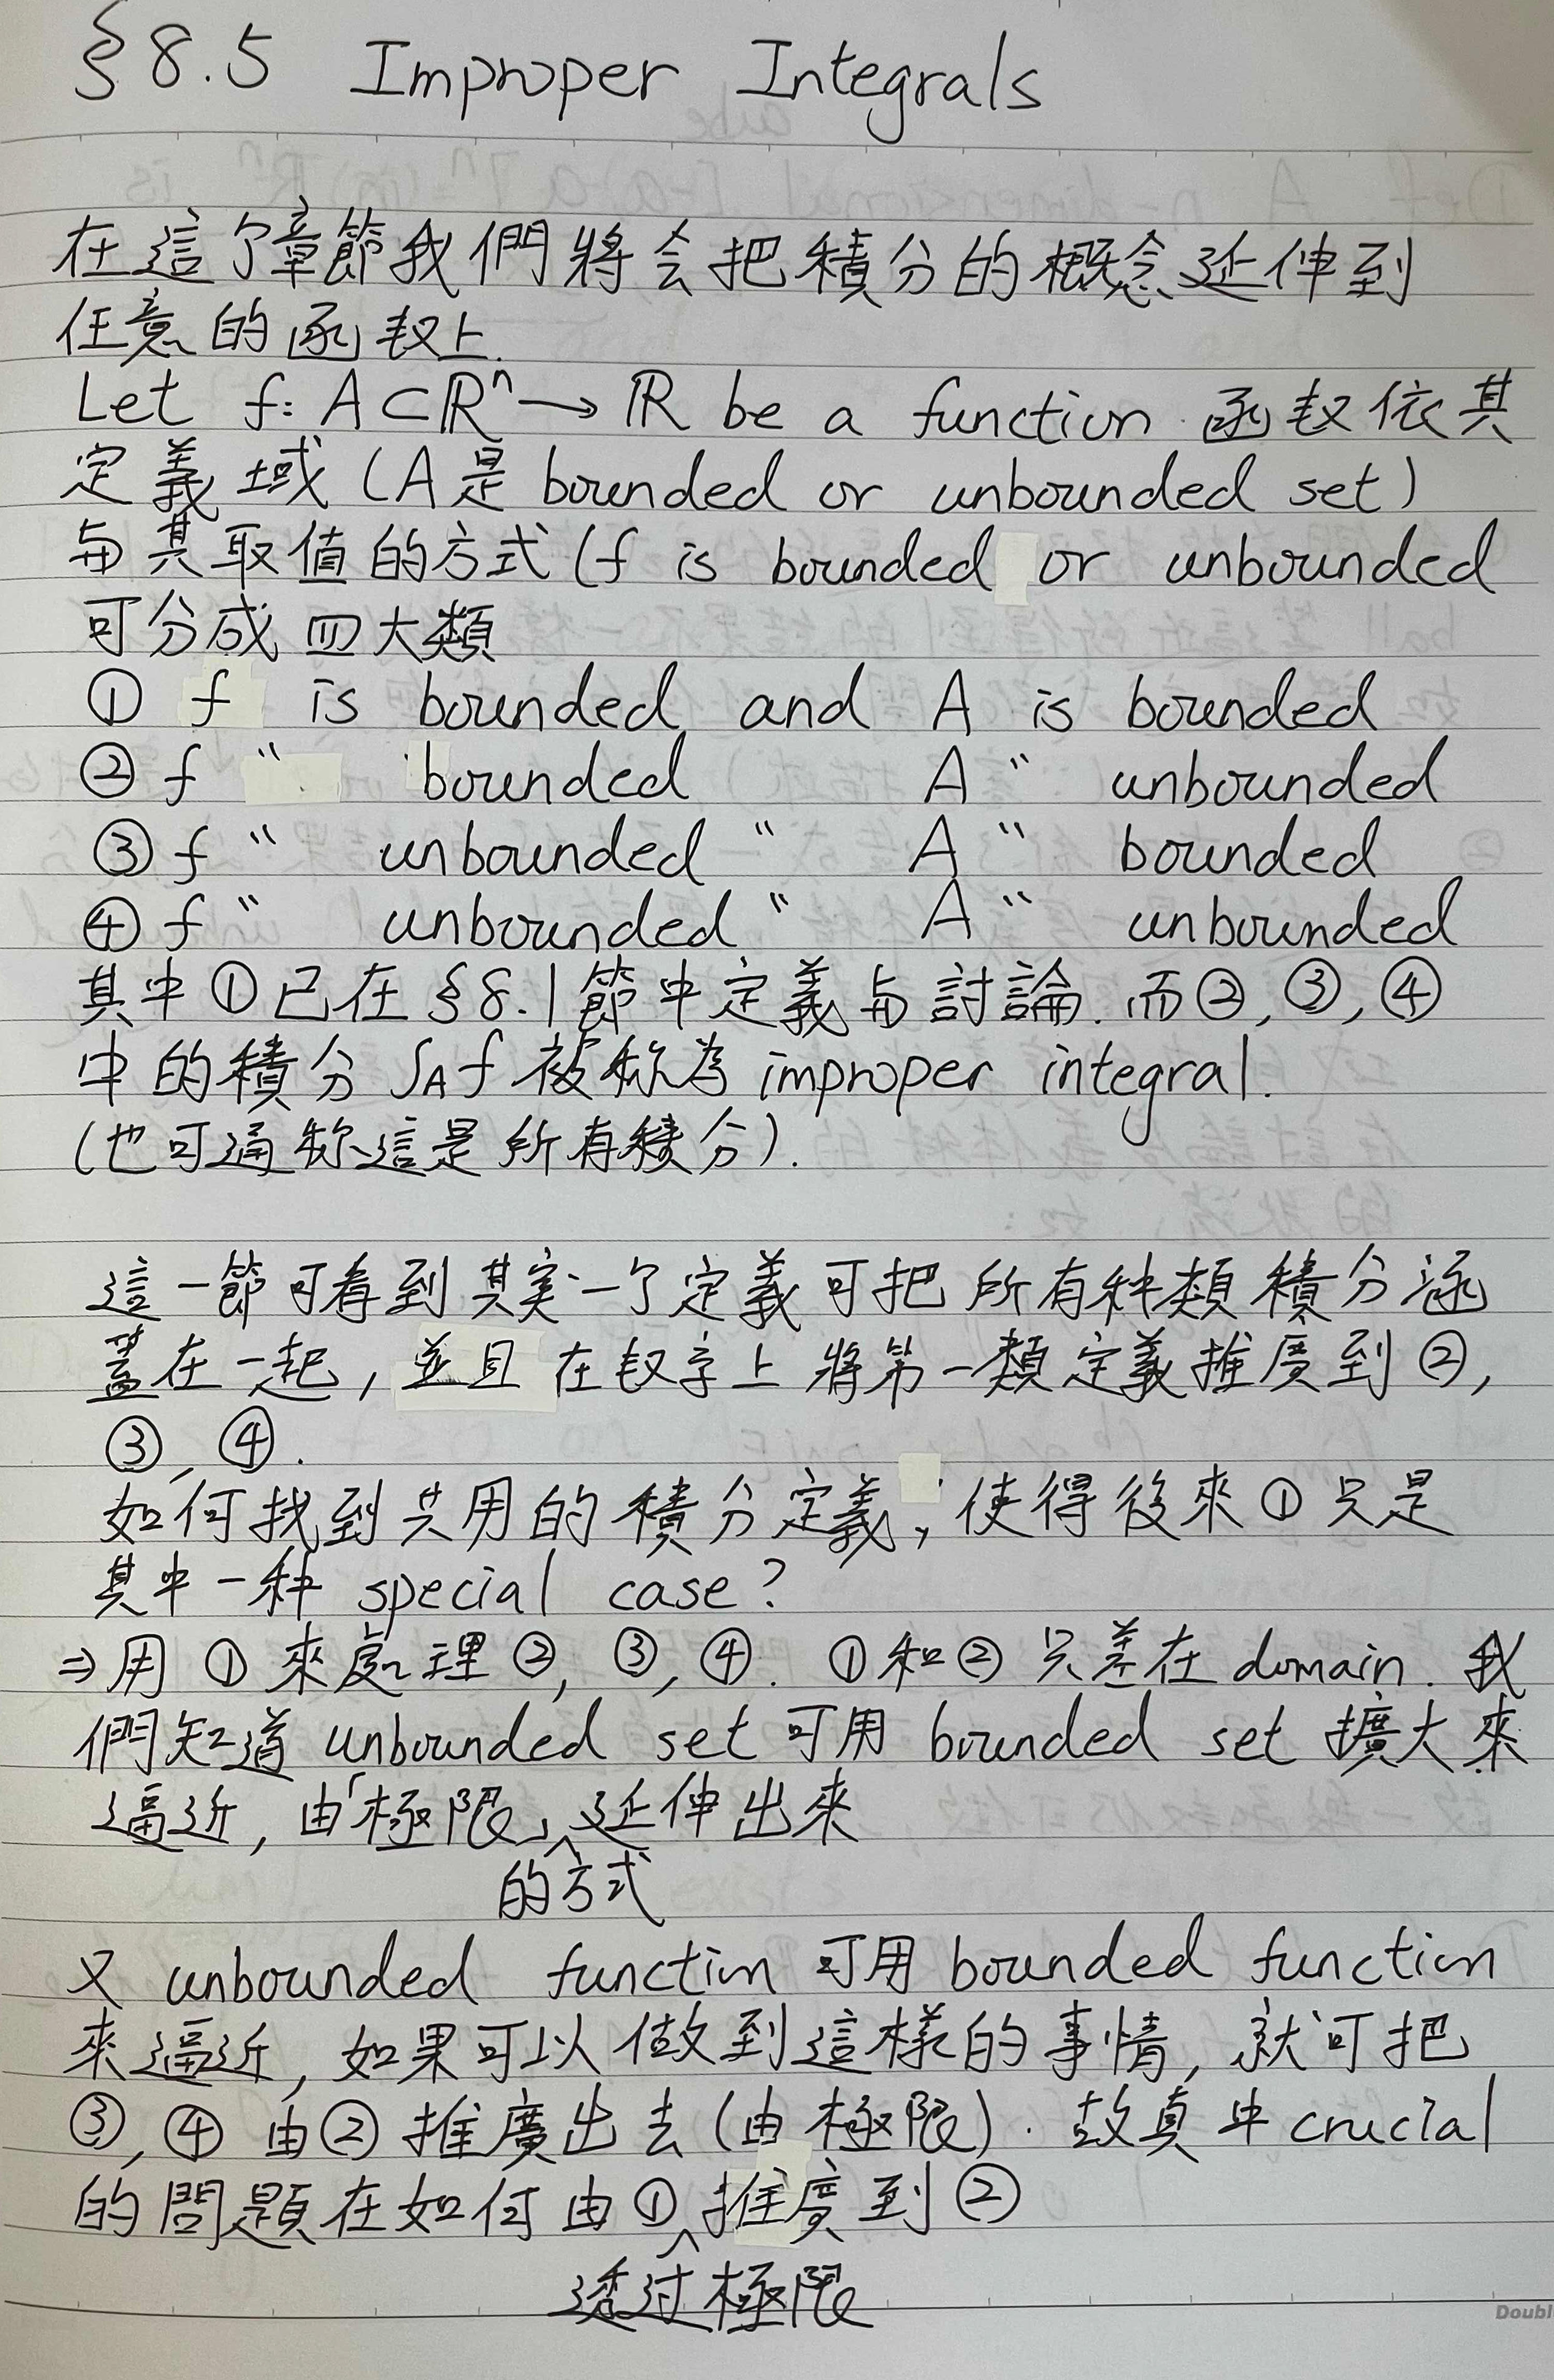 §8.5 Improper Integrals
在這个章節我們將会把積分的概念延伸到
任意的函数上.
Let f: A⊂ℝⁿ→ℝ be a function. 函数依其
定義域 (A是 bounded or unbounded set)
与其取值的方式 (f is bounded or unbounded
可分成四大類
① f is bounded and A is bounded
② f " bounded A " unbounded
③ f " unbounded " A " bounded
④ f " unbounded " A " unbounded
其中①已在§8.1節中定義与討論. 而②,③,④
中的積分 ∫_A f 被称為 improper integral.
(也可通称這是所有積分).
這一節可看到其実一个定義可把所有种類積分涵
蓋在一起, 並且在数学上將第一類定義推廣到②,
③, ④.
如何找到共用的積分定義, 使得後來①只是
其中一种 special case?
⇒用①來處理②, ③, ④. ①和②只差在 domain. 我
們知道 unbounded set 可用 bounded set 擴大來
逼近, 由「極限」延伸出來
的方式
又 unbounded function 可用 bounded function
來逼近, 如果可以做到這樣的事情, 就可把
③, ④ 由②推廣出去 (由極限). 故真中 crucial
的問題在如何由①推廣到②
透过極限
Doubl